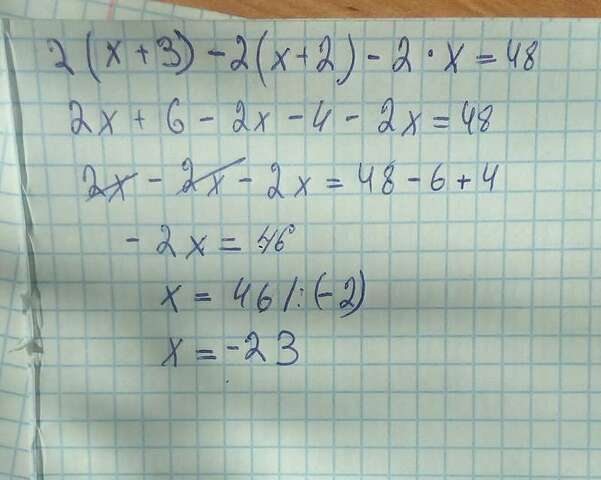 2(x+3)-2(x+2)-2·x=48
2x+6-2x-4-2x=48
2x-2x-2x=48-6+4
-2x=46
x=46/:(-2)
x=-23